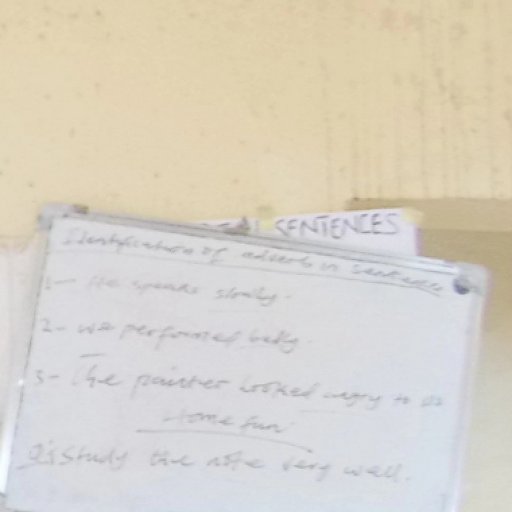 SENTENCES
Identification of adverbs in sentences
1- He speaks slowly.
2- We performed badly.
3- The painter looked angry to us
Home fun
Q: Study the note very well.